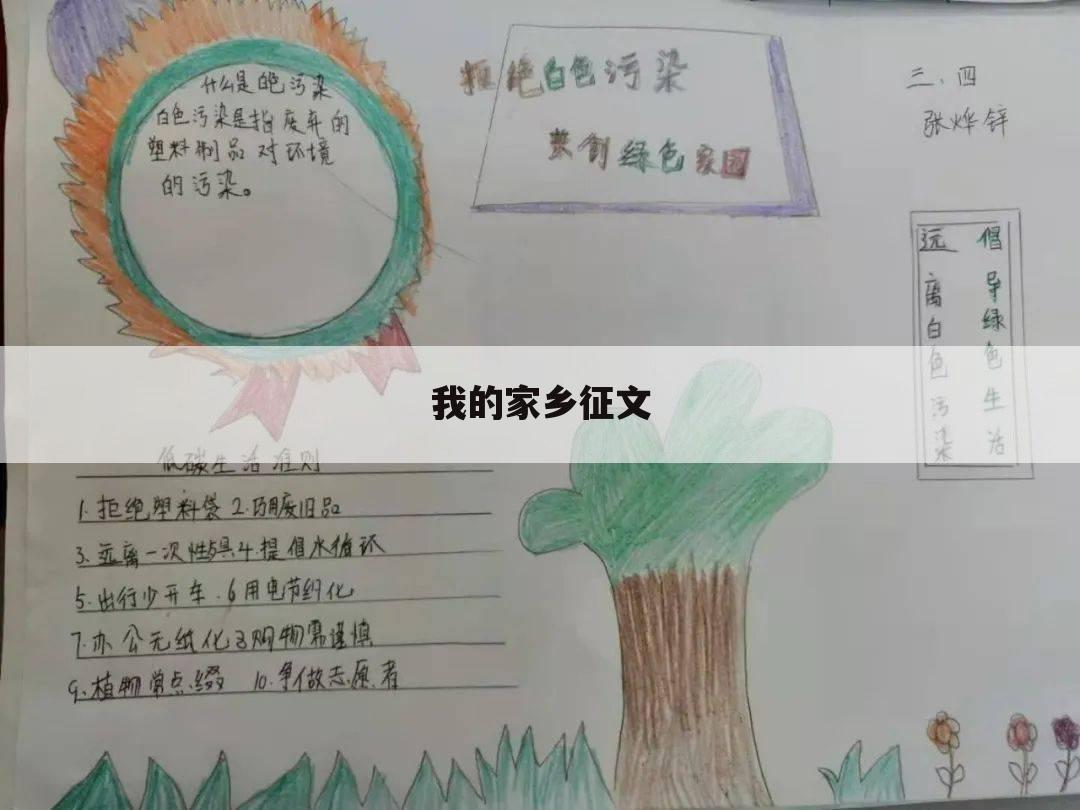 什么是白色污染
白色污染是指废弃的
塑料制品对环境
的污染。
拒绝白色污染
共创绿色家园
三、四
张烨锌
倡导绿色生活
远离白色污染
我的家乡征文
低碳生活准则
1.拒绝塑料袋 2.巧用废旧品
3.远离一次性餐具4.提倡水循环
5.出行少开车.6用电节约化
7.办公无纸化8购物需谨慎
9.植物常点缀 10.争做志愿者